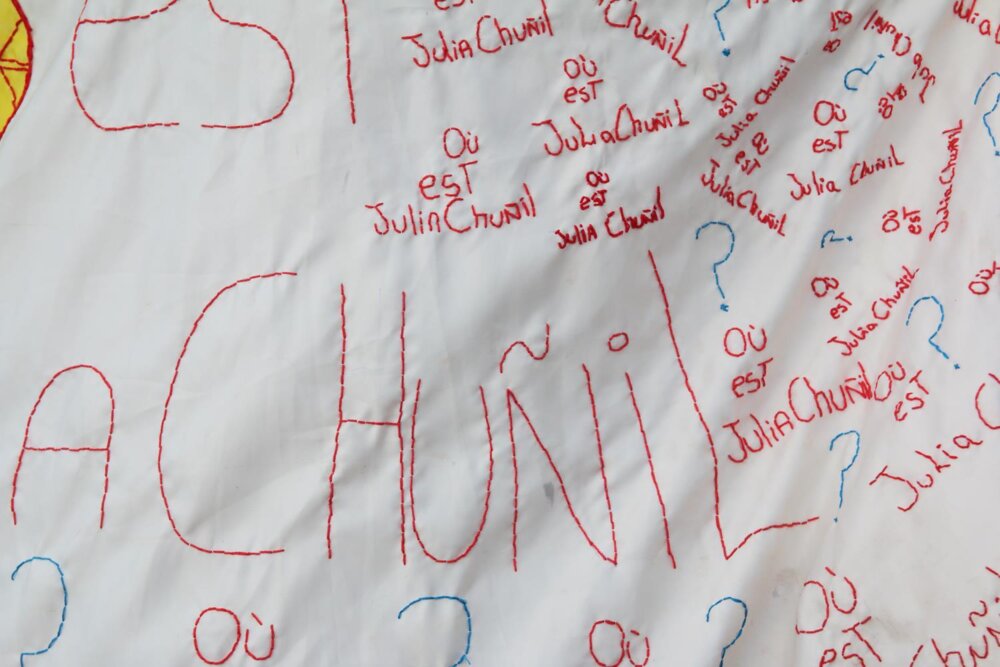 est
Julia Chuñil
Chuñil
?
Où
est
Julia Chuñil
Où
est
Julia Chuñil
Où
est
Julia Chuñil
Où
est
Julia Chuñil
Où
est
Julia Chuñil
?
Où
est
Julia Chuñil
Où
est
Julia Chuñil
?
?
?
A CHUÑiL
Où
est
Julia Chuñil
?
Où
est
Julia Chuñil
Où
est
Julia C
?
?
Où
?
Où
?
Où
est
Chuñil